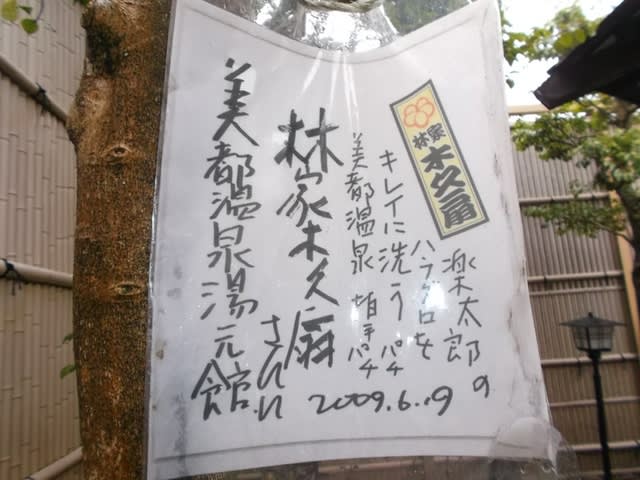 林家木久扇
楽太郎の
ハラグロを
キレイに洗う パチ
美都温泉 拍手パチ
2009.6.19
林家木久扇
美都温泉湯元館